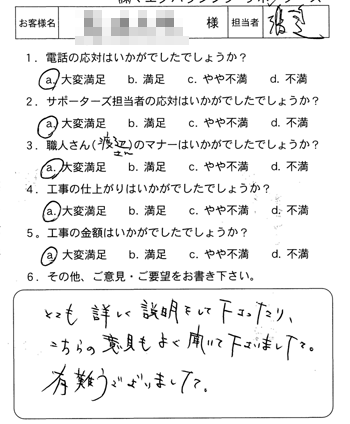 お客様名 様 担当者 渡辺
1．電話の応対はいかがでしたでしょうか？
a. 大変満足 b. 満足 c. やや不満 d. 不満
2．サポーターズ担当者の応対はいかがでしたでしょうか？
a. 大変満足 b. 満足 c. やや不満 d. 不満
3．職人さん(渡辺さん)のマナーはいかがでしたでしょうか？
a. 大変満足 b. 満足 c. やや不満 d. 不満
4．工事の仕上がりはいかがでしたでしょうか？
a. 大変満足 b. 満足 c. やや不満 d. 不満
5．工事の金額はいかがでしたでしょうか？
a. 大変満足 b. 満足 c. やや不満 d. 不満
6．その他、ご意見・ご要望をお書き下さい。
とても 詳しく 説明をして下さったり、
こちらの意見もよく聞いて下さいまして。
有難うございました。